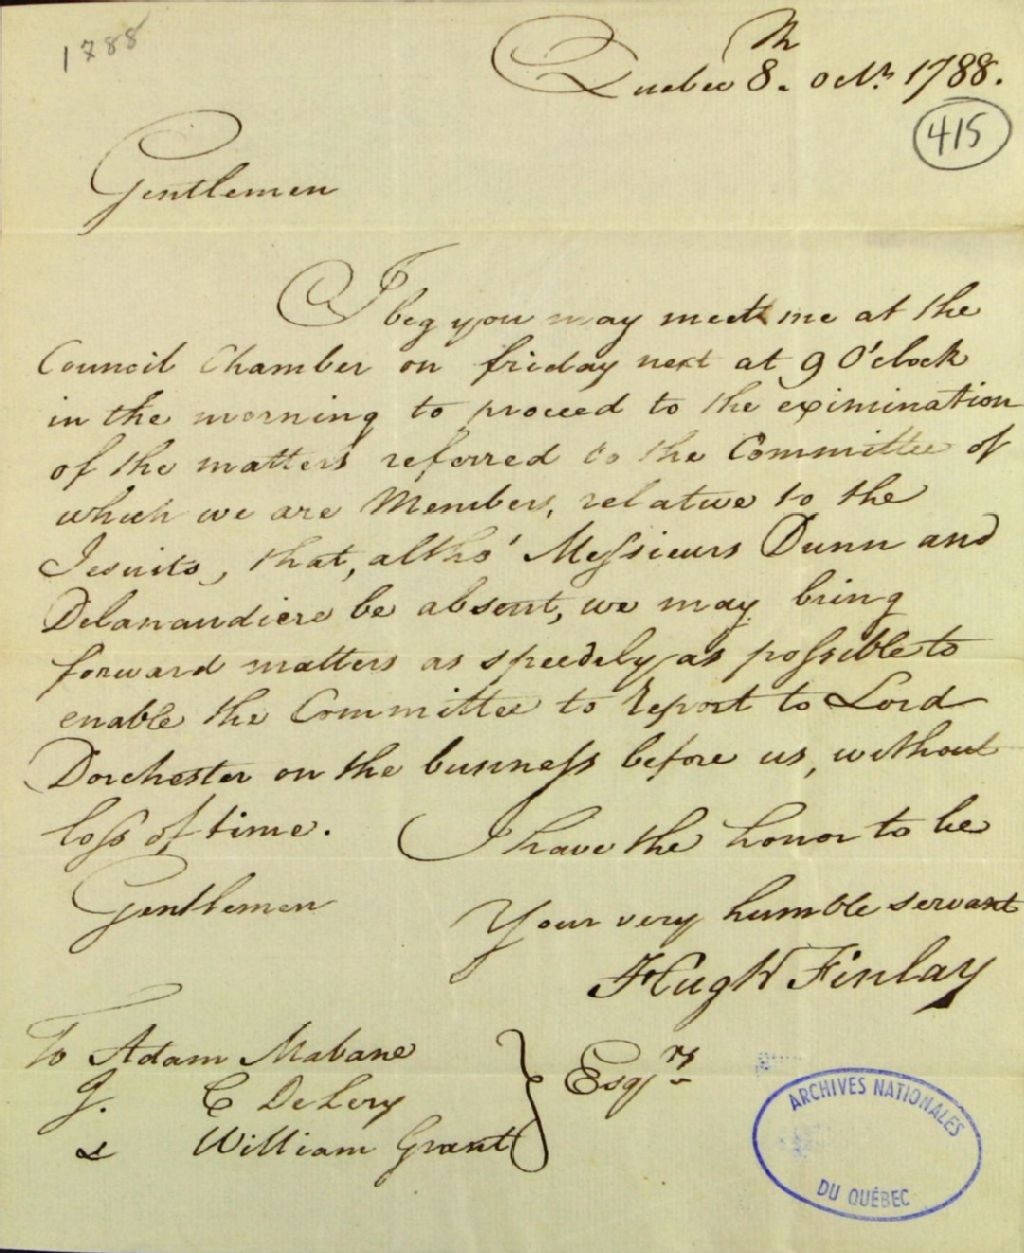 1788
Quebec 8th. octr. 1788.
415
Gentlemen
I beg you may meet me at the
Council Chamber on friday next at 9 O'clock
in the morning to proceed to the eximination
of the matters referred to the Committee of
which we are Members, relative to the
Jesuits, that, altho' Messieurs Dunn and
Delanaudiere be absent, we may bring
forward matters as speedely as possible to
enable the Committee to Report to Lord
Dorchester on the business before us, without
loss of time. I have the honor to be
Gentlemen
Your very humble servant
Hugh Finlay
To Adam Mabane
J. C DeLery
& William Grant
Esqrs
ARCHIVES NATIONALES
DU QUÉBEC